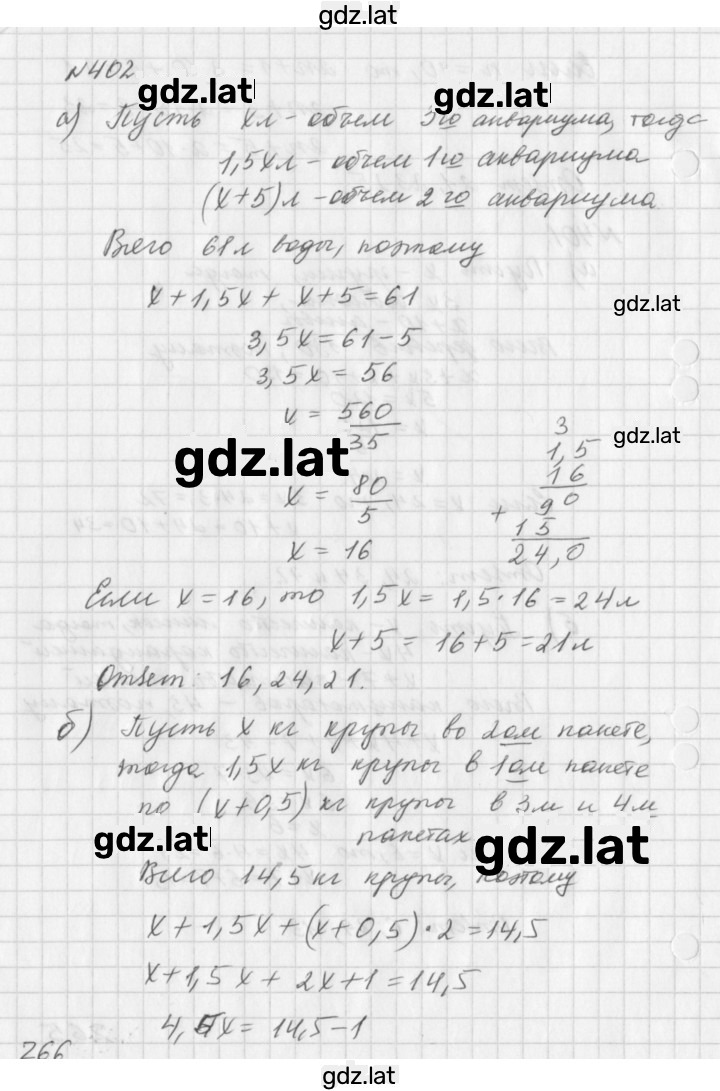 gdz.lat
№402
gdz.lat
gdz.lat
а) Пусть x л - объем 3го аквариума, тогда
1,5x л - объем 1го аквариума
(x+5) л - объем 2го аквариума
Всего 61 л воды, поэтому
x+1,5x+ x+5=61
gdz.lat
3,5x=61-5
3,5x=56
x = 560/35
gdz.lat
gdz.lat
x = 80/5
x = 16
3
1,5
16
90
+
15
24,0
Если x=16, то 1,5x= 1,5·16=24л
x+5 = 16+5=21л
Ответ: 16, 24, 21.
б) Пусть x кг крупы во 2ом пакете,
тогда 1,5x кг крупы в 1ом пакете
по (x+0,5) кг крупы в 3м и 4м
пакетах
gdz.lat
gdz.lat
Всего 14,5 кг крупы, поэтому
x+1,5x+(x+0,5)·2=14,5
x+1,5x+ 2x+1=14,5
4,5x= 14,5-1
266
gdz.lat